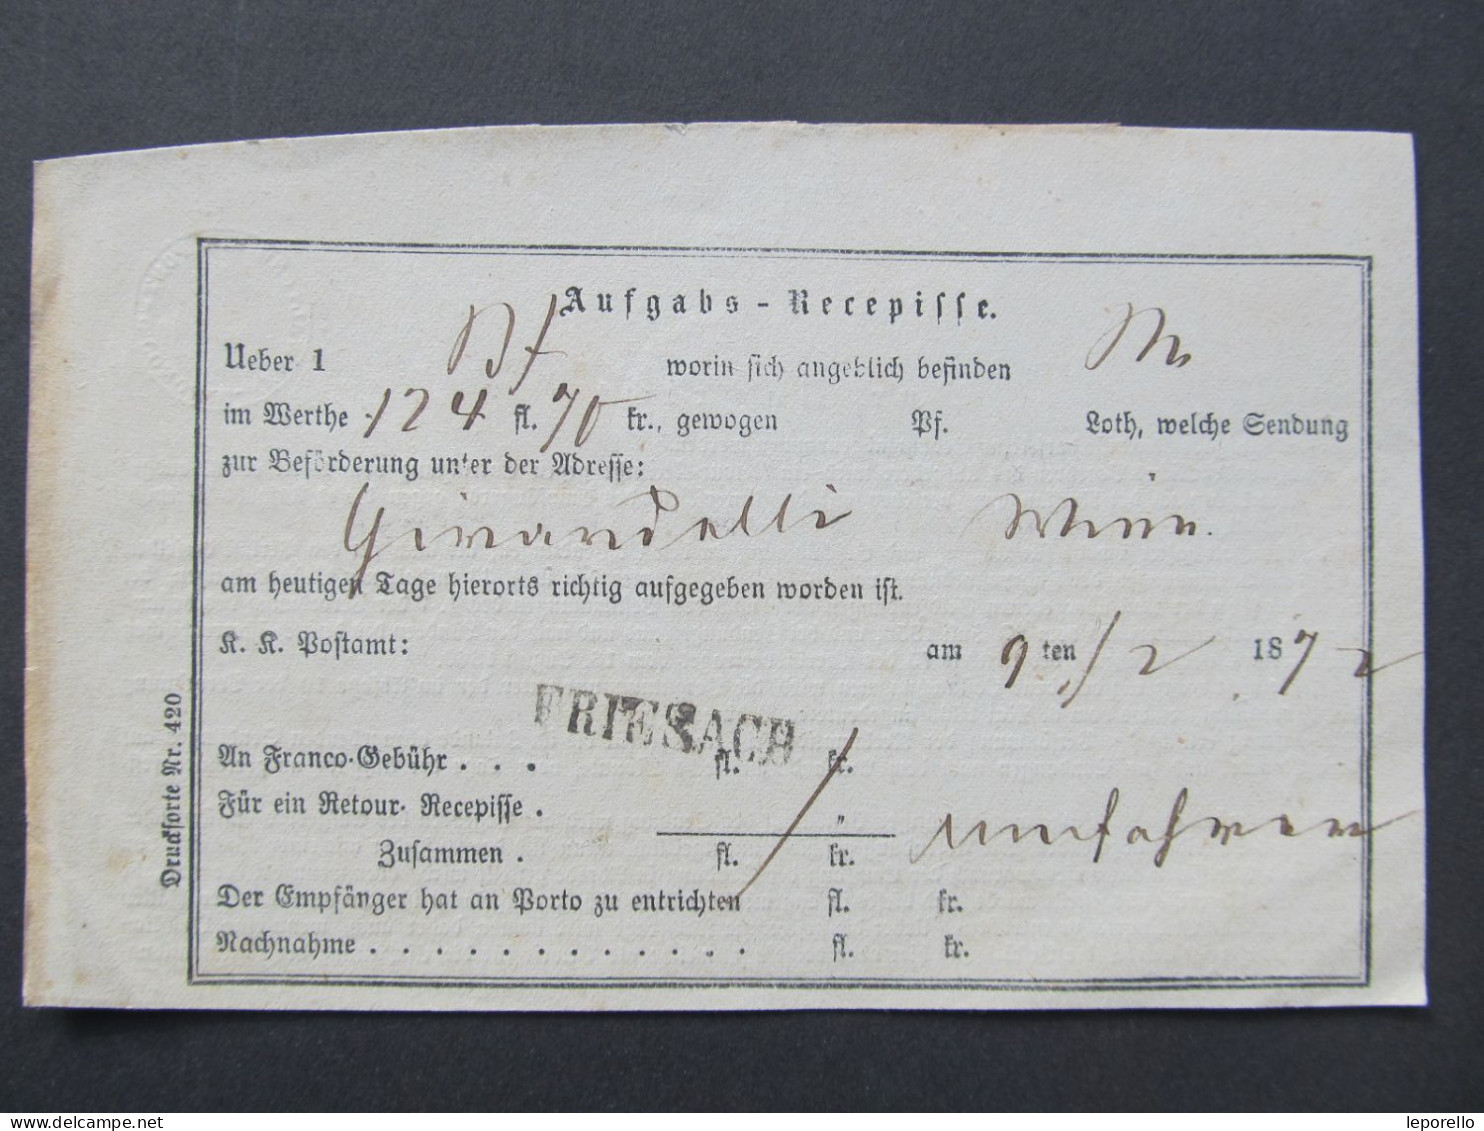 Aufgabs-Recepisse.
Ueber 1 Bf worin sich angeblich befinden
im Werthe 124 fl. 70 kr., gewogen Pf. Loth, welche Sendung
zur Beförderung unter der Adresse:
Girardelli Wien.
am heutigen Tage hierorts richtig aufgegeben worden ist.
K. K. Postamt: am 9ten /2 1872
FRIESACH
An Franco-Gebühr . . . fl. kr.
Für ein Retour-Recepisse . "
Zusammen . fl. kr.
Der Empfänger hat an Porto zu entrichten fl. kr.
Nachnahme . . . . . . . . . . . . fl. kr.
Drucksorte Nr. 420
leporello